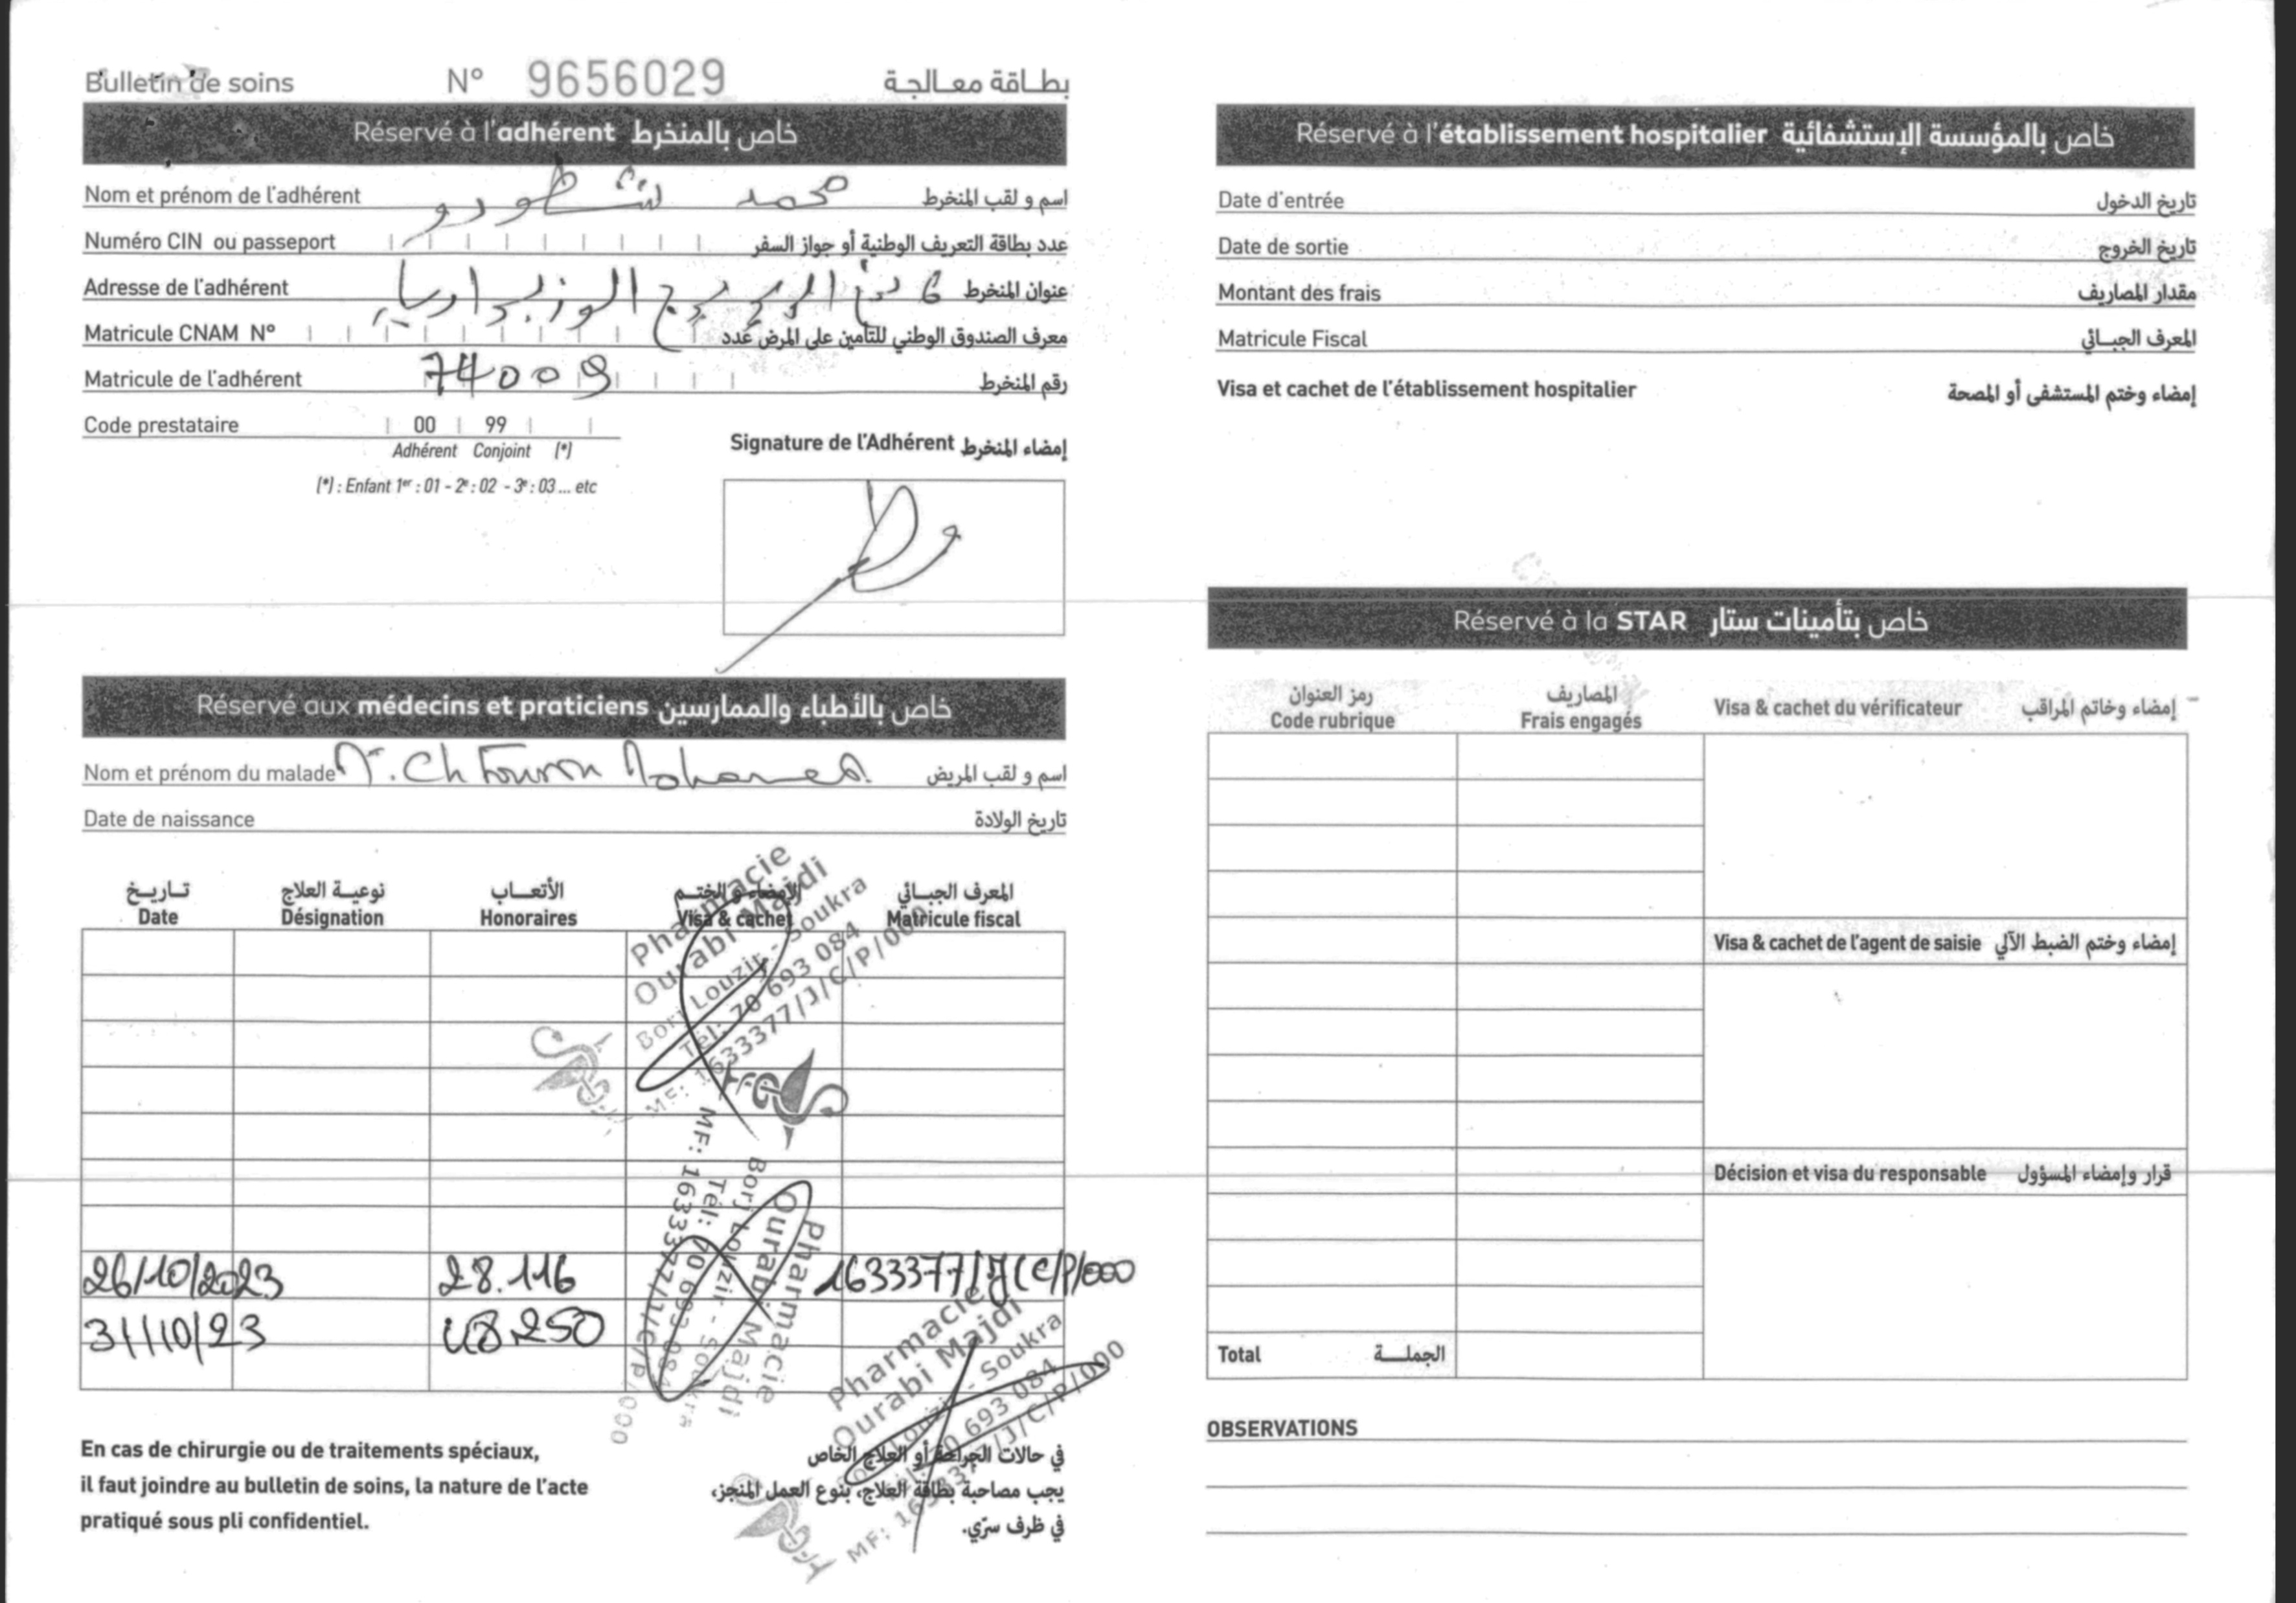 Bulletin de soins N° 9656029 بطاقة معالجة
Réservé à l'adhérent خاص بالمنخرط
Nom et prénom de l'adhérent محمد اسم و لقب المنخرط
Numéro CIN ou passeport عدد بطاقة التعريف الوطنية أو جواز السفر
Adresse de l'adhérent 6 عنوان المنخرط
Matricule CNAM N° معرف الصندوق الوطني للتأمين على المرض عدد
Matricule de l'adhérent 74009 رقم المنخرط
Code prestataire 00 99
Adhérent Conjoint (*)
(*) : Enfant 1er : 01 - 2e : 02 - 3e : 03 ... etc
Signature de l'Adhérent إمضاء المنخرط
Réservé aux médecins et praticiens خاص بالأطباء والممارسين
Nom et prénom du malade Mohamed اسم و لقب المريض
Date de naissance تاريخ الولادة
تاريخ نوعية العلاج الأتعاب الإمضاء و الختم المعرف الجبائي
Date Désignation Honoraires Visa & cachet Matricule fiscal
Pharmacie
Ourabi Majdi
Borj Louzir - Soukra
Tél: 70 693 084
MF: 1633377/J/C/P/000
Pharmacie
Ourabi Majdi
Borj Louzir - Soukra
Tél: 70 693 084
MF: 1633377/J/C/P/000
26/10/2023 28.116 1633377/J/C/P/000
31/10/23 250
Pharmacie
Ourabi Majdi
Borj Louzir - Soukra
Tél: 70 693 084
MF: 1633377/J/C/P/000
En cas de chirurgie ou de traitements spéciaux,
il faut joindre au bulletin de soins, la nature de l'acte
pratiqué sous pli confidentiel.
في حالات الجراحة أو العلاج الخاص
يجب مصاحبة بطاقة العلاج، بنوع العمل المنجز،
في ظرف سرّي.
Réservé à l'établissement hospitalier خاص بالمؤسسة الإستشفائية
Date d'entrée تاريخ الدخول
Date de sortie تاريخ الخروج
Montant des frais مقدار المصاريف
Matricule Fiscal المعرف الجبائي
Visa et cachet de l'établissement hospitalier إمضاء وختم المستشفى أو المصحة
Réservé à la STAR خاص بتأمينات ستار
رمز العنوان المصاريف
Code rubrique Frais engagés Visa & cachet du vérificateur إمضاء وخاتم المراقب
Visa & cachet de l'agent de saisie إمضاء وختم الضبط الآلي
Décision et visa du responsable قرار وإمضاء المسؤول
Total الجملة
OBSERVATIONS